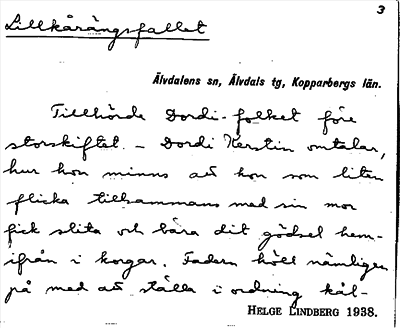 3
Lillkårängsfallet
Älvdalens sn, Älvdals tg, Kopparbergs län.
Tillhörde Dordi-folket före
storskiftet. – Dordi Kerstin omtalar,
hur hon minns att hon som liten
flicka tillsammans med sin mor
fick slita och bära dit gödsel hem-
ifrån i korgar. Fadern höll nämligen
på med att ställa i ordning kål-
HELGE LINDBERG 1938.